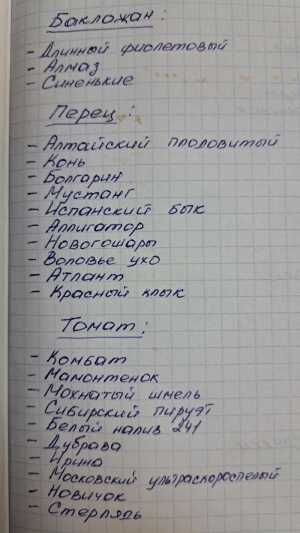 Баклажан:
- Длинный фиолетовый
- Алмаз
- Синенькие
Перец:
- Алтайский плодовитый
- Конь
- Болгарин
- Мустанг
- Испанский бык
- Аллигатор
- Новогошары
- Воловье ухо
- Атлант
- Красный клык
Томат:
- Комбат
- Мамонтенок
- Мохнатый шмель
- Сибирский пируэт
- Белый налив 241
- Дубрава
- Ирина
- Московский ультраскороспелый
- Новичок
- Стерлядь